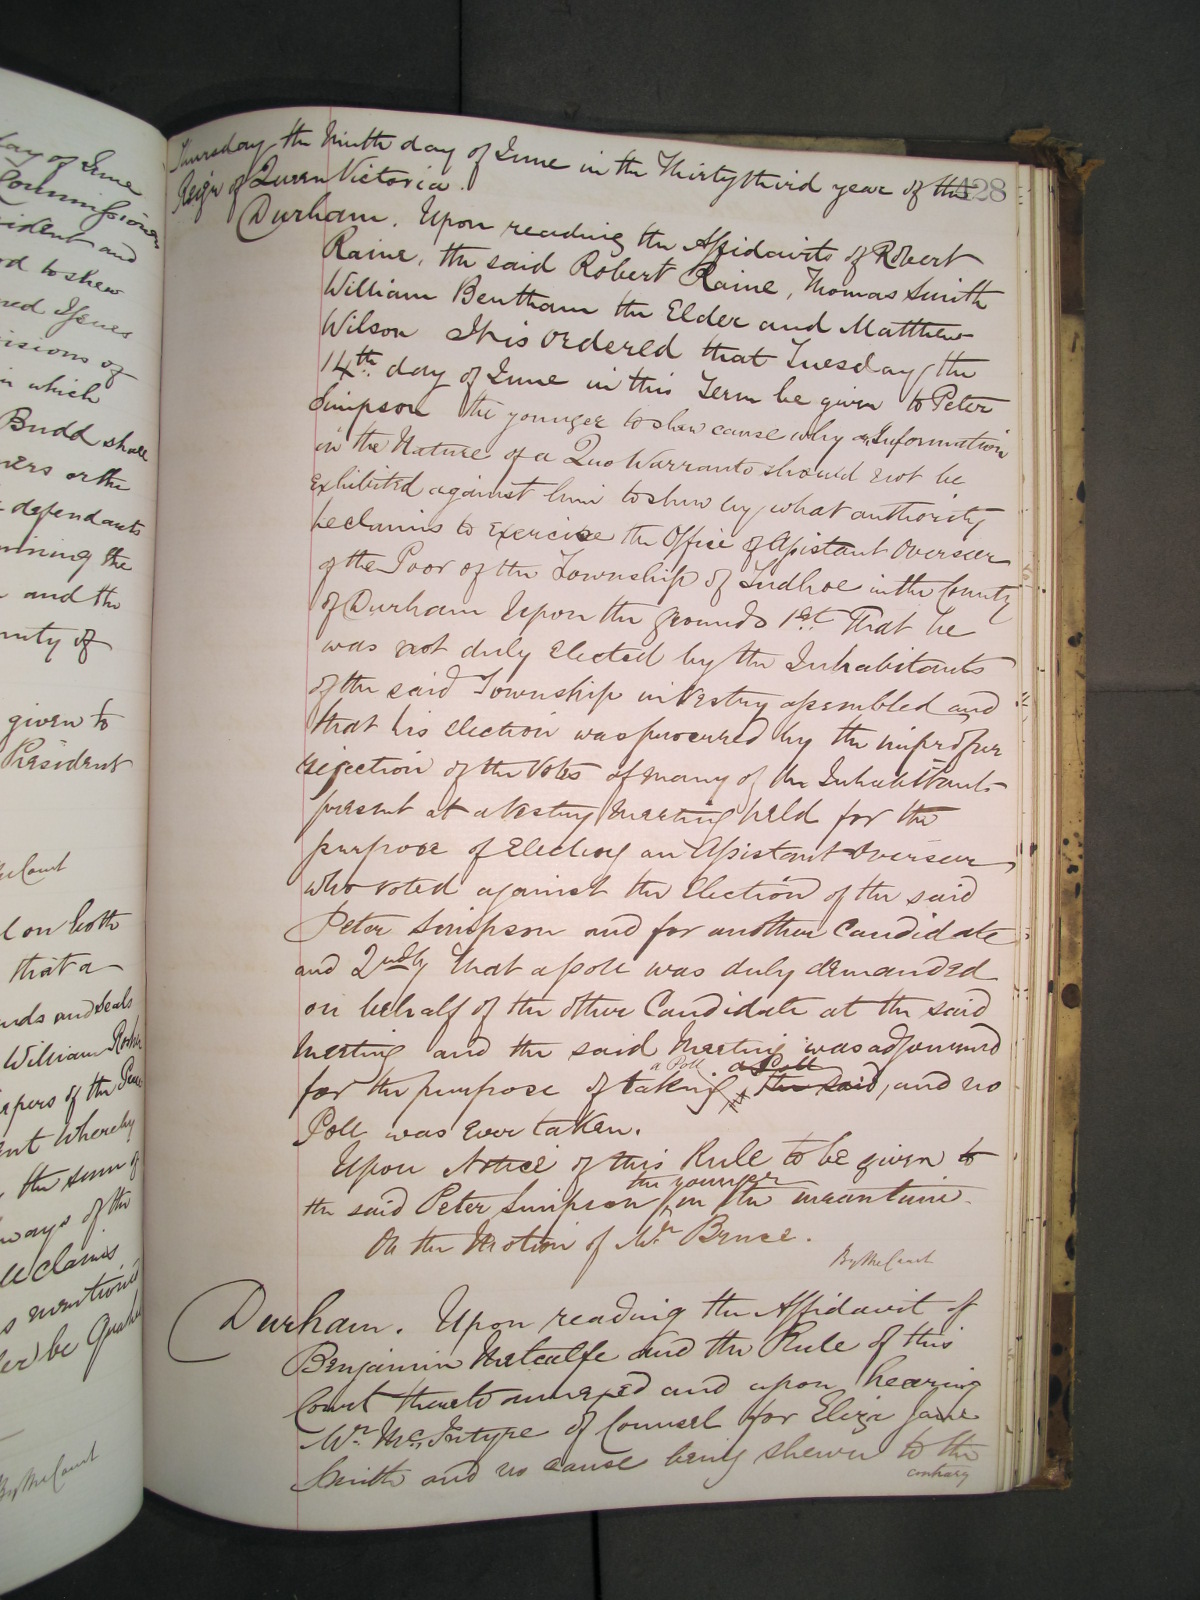 Thursday the Ninth day of June in the Thirtythird year of the
428
Reign of Queen Victoria.
Durham. Upon reading the Affidavits of Robert
Raine, the said Robert Raine, Thomas Smith
William Bentham the Elder and Matthew
Wilson It is ordered that Tuesday the
14th day of June in this Term be given to Peter
Simpson the younger to shew cause why an Information
in the Nature of a Quo Warranto should not be
exhibited against him to shew by what authority
he claims to exercise the Office of Assistant Overseer
of the Poor of the Township of Tudhoe in the County
of Durham Upon the grounds 1st That he
was not duly elected by the Inhabitants
of the said Township in Vestry assembled and
that his election was procured by the improper
rejection of the Votes of many of the Inhabitants
present at a Vestry Meeting held for the
purpose of Electing an Assistant Overseer,
who voted against the Election of the said
Peter Simpson and for another Candidate
and 2ndly That a poll was duly demanded
on behalf of the other Candidate at the said
Meeting and the said Meeting was adjourned
a Poll a Poll
for the purpose of taking the said, and no
Poll was ever taken.
Upon Notice of this Rule to be given to
the younger
the said Peter Simpson in the meantime.
On the Motion of Mr. Bruce.
By the Court
Durham. Upon reading the Affidavit of
Benjamin Metcalfe and the Rule of this
Court thereto annexed and upon hearing
Mr. McIntyre of Counsel for Eliza Jane
Smith and no cause being shewn to the
contrary
day of June
Commissioners
President and
to shew
Issues
in which
Budd shall
or the
defendants
the
and the
of
given to
President
By the Court
on both
that a
and Seals
William
of the Peace
Whereby
the sum of
of the
claims
mentioned
be
By the Court